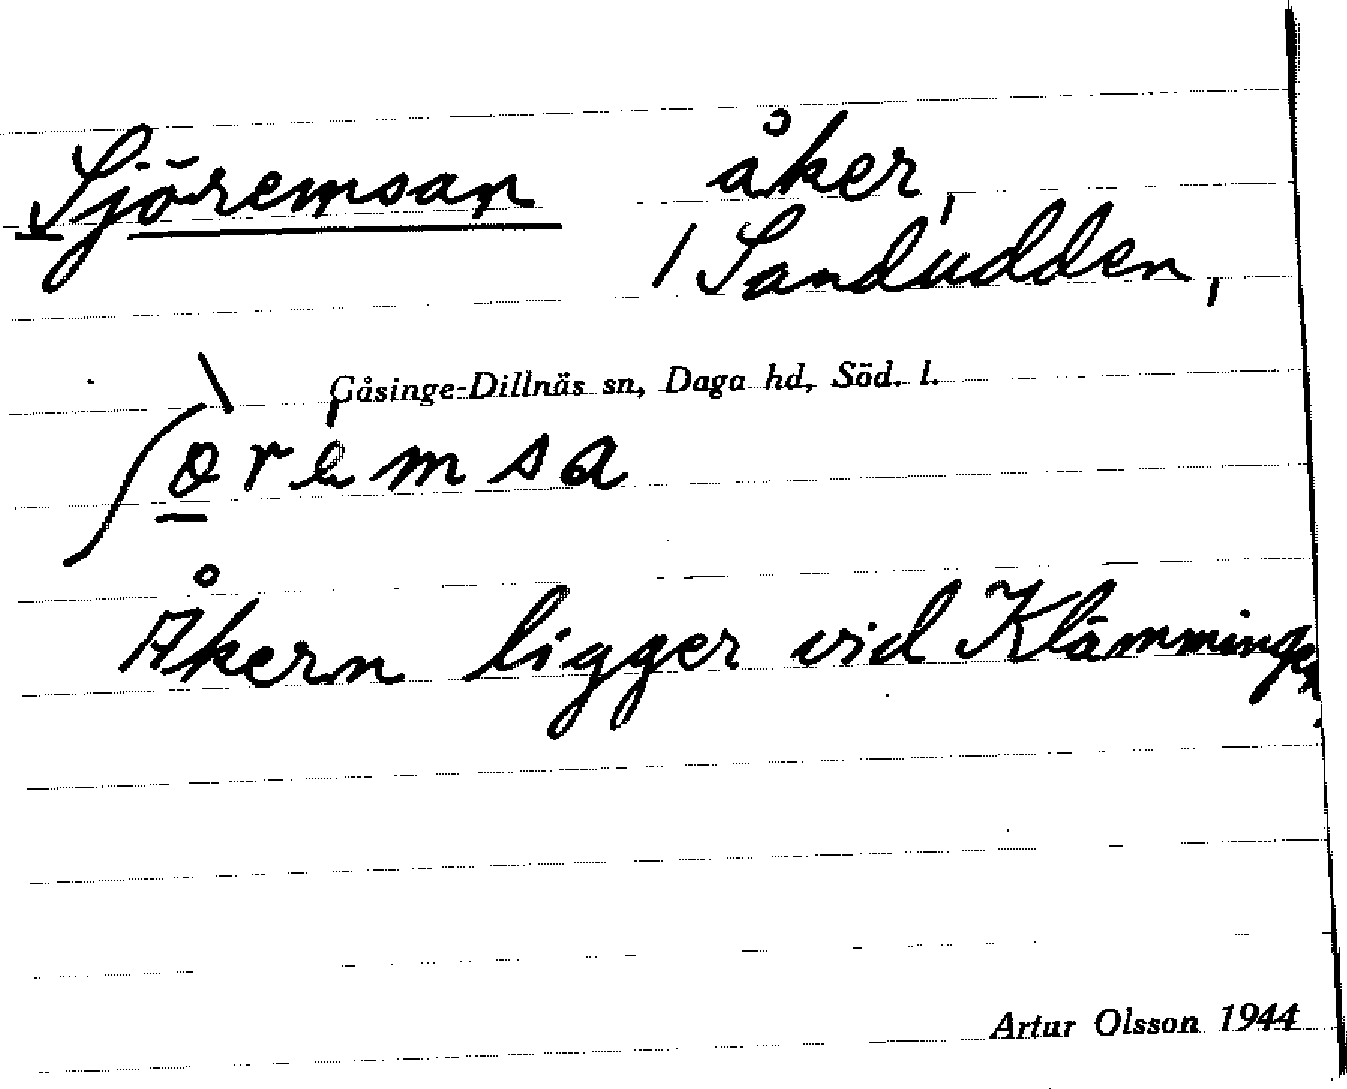 Sjöremsan åker,
1 Sandudden,
Gåsinge-Dillnäs sn, Daga hd, Söd. l.
ʃɵ̠̀rèmsa
Åkern ligger vid Klämmingen.
Artur Olsson 1944